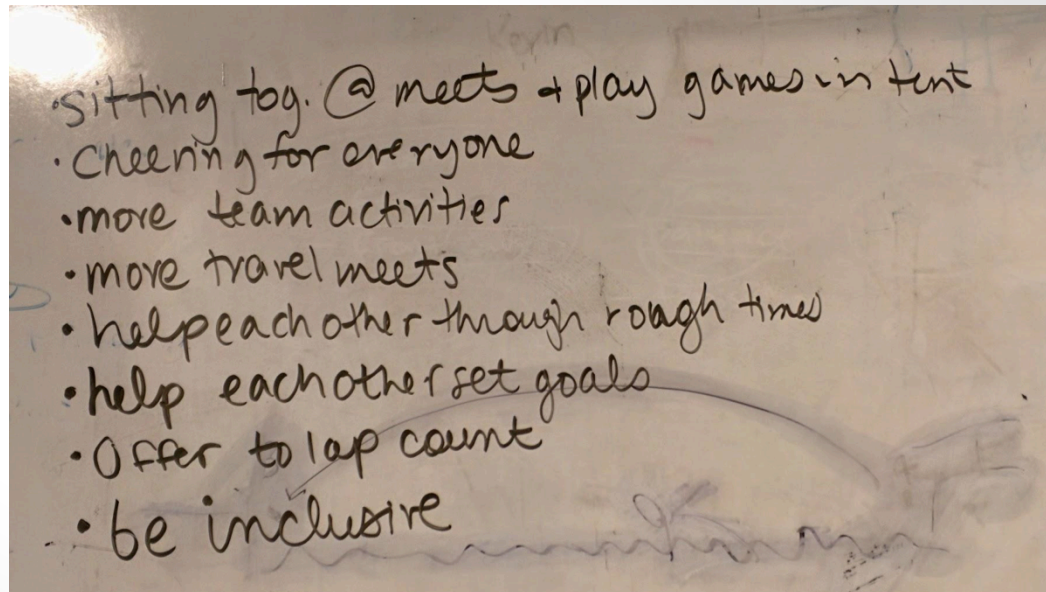 ·sitting tog. @ meets + play games in tent
·cheering for everyone
·more team activities
·more travel meets
·help each other through rough times
·help each other set goals
·Offer to lap count
·be inclusive